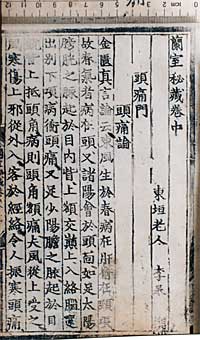 蘭室秘藏卷中
東垣老人 李杲 撰
頭痛門
頭痛論
金匱真言論云東風生於春病在肝俞在頸項
故春氣者病在頭又諸陽會於頭面如足太陽
膀胱之脈起於目內眥上額交巔上入絡腦還
出別下項病衝頭痛又足少陽膽之脈起於目
銳眥上抵頭角病則頭角額痛夫風從上受之
風寒傷上邪從外入客於經絡令人振寒頭痛